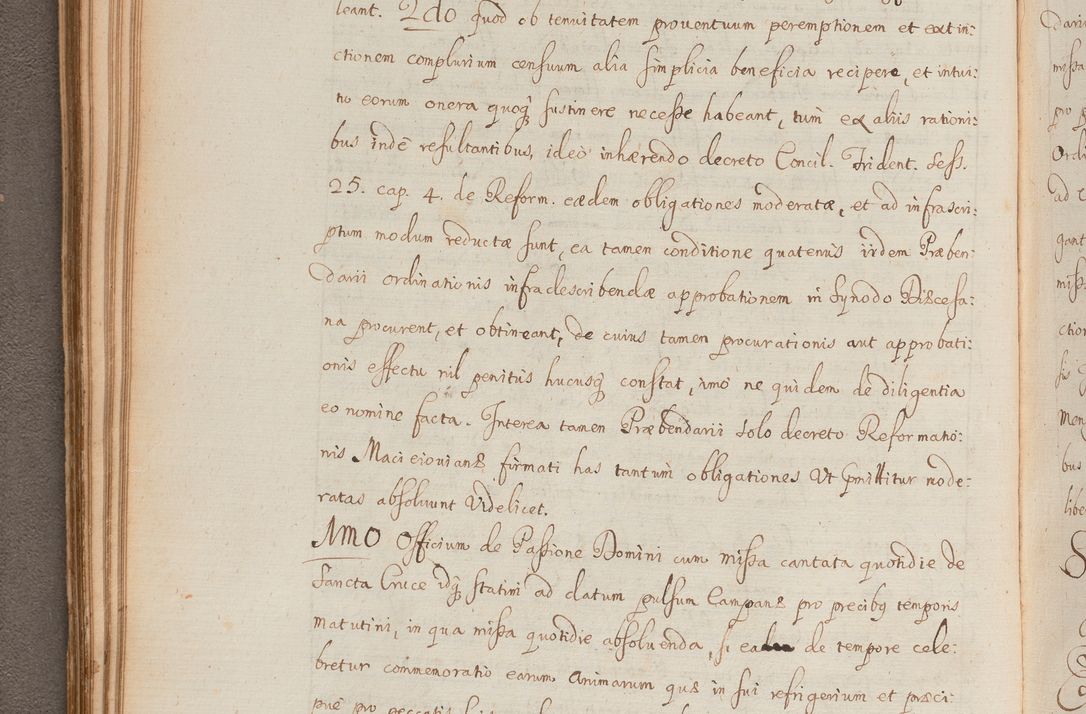 leant. 2do quod ob tenuitatem prouentuum peremptionem et extin:
ctionem complurium censuum alia simplicia beneficia recipere, et intui:
tu eorum onera quoq̃ sustinere necesse habeant, tum ex aliis rationi:
bus indè resultantibus, ideò inhærendo decreto Concil. Trident. sess.
25. cap. 4. de Reform. eædem obligationes moderatæ, et ad infrascri:
ptum modum reductæ sunt, ea tamen conditione quatenus iidem Præben:
darii ordinationis infradescribendæ approbationem in Synodo Diæcesa:
na procurent, et obtineant, de cuius tamen procurationis aut approbati:
onis effectu nil penitùs hucusq̃ constat, imò ne quidem de diligentia
eo nomine facta. Interea tamen Præbendarii solo decreto Reformatio:
nis Macieiouianæ firmati has tantum obligationes ut pmittitur mode:
ratas absoluunt videlicet.
1mo Officium de Passione Domini cum missa cantata quotidie de
Sancta Cruce idq̃ statim ad datum pulsum Campanæ pro precibq temporis
matutini, in qua missa quotidie absoluenda, si ea de tempore cele:
bretur commemoratio earum Animarum quæ in sui refrigerium et præci:
puè pro peccatis
Darii
missa
pro p
Ordi
ad
gant
miss
ction
sis
Men
bus
libe